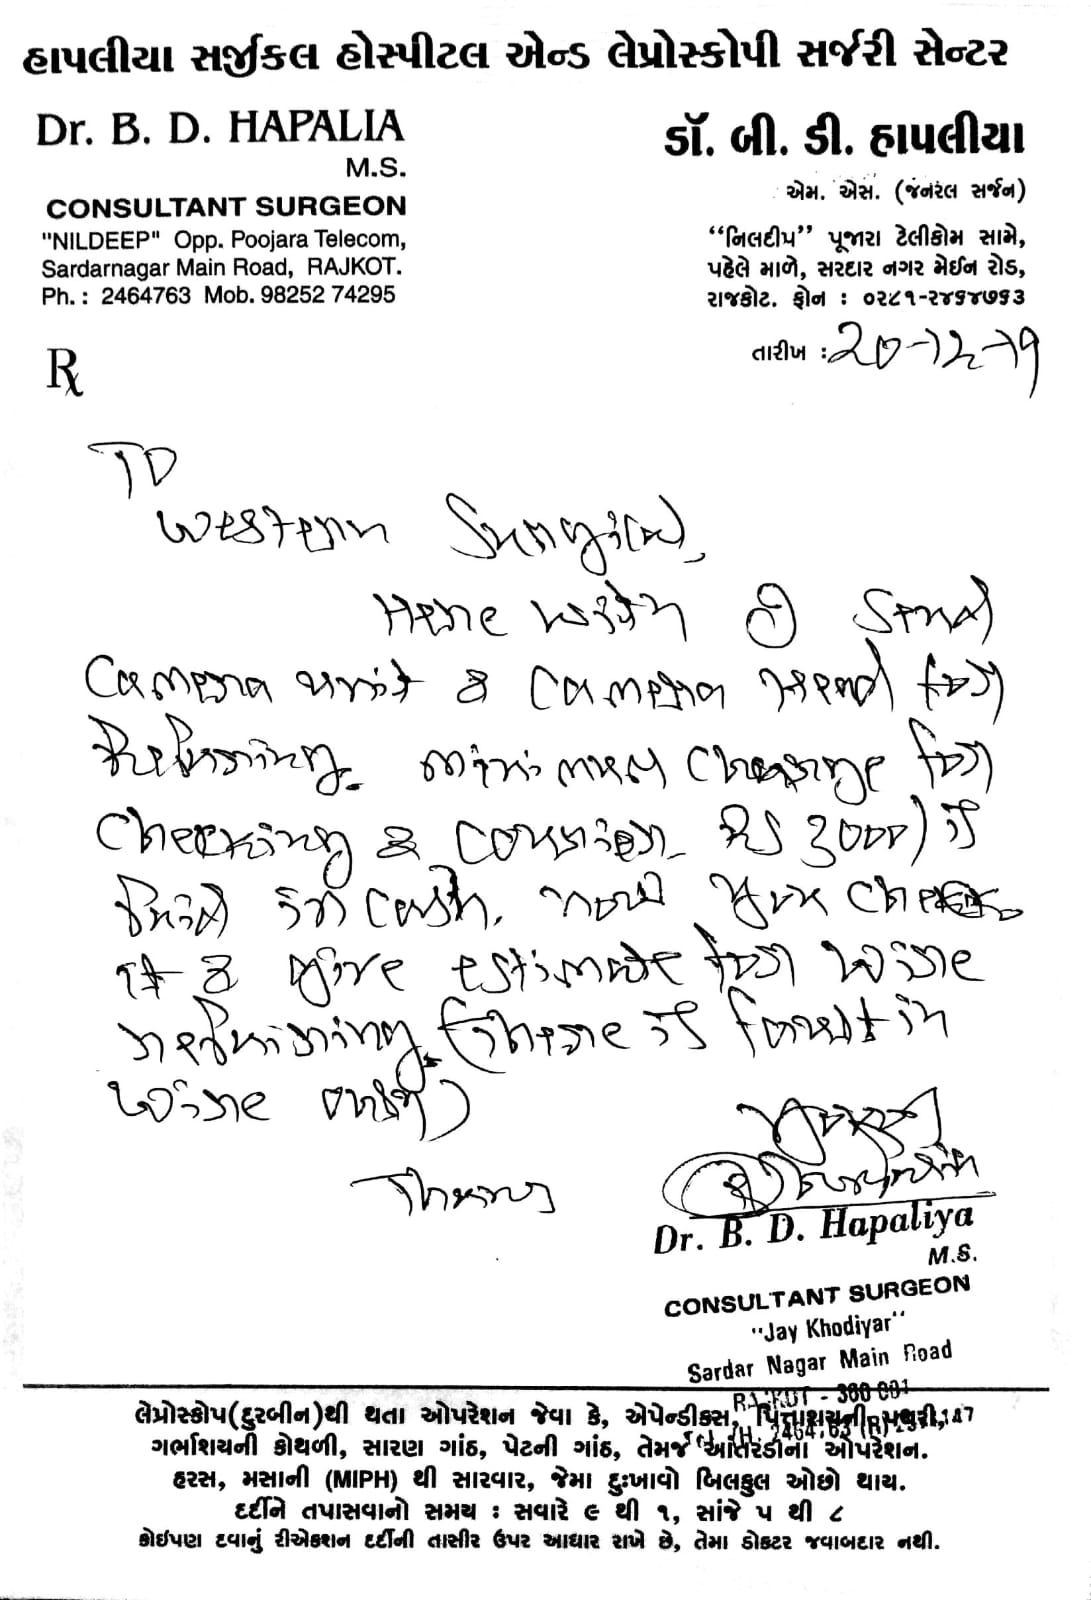 હાપલીયા સર્જીકલ હોસ્પીટલ એન્ડ લેપ્રોસ્કોપી સર્જરી સેન્ટર
Dr. B. D. HAPALIA
M.S.
CONSULTANT SURGEON
"NILDEEP" Opp. Poojara Telecom,
Sardarnagar Main Road, RAJKOT.
Ph. : 2464763 Mob. 98252 74295
ડૉ. બી. ડી. હાપલીયા
એમ. એસ. (જનરલ સર્જન)
“નિલદીપ” પૂજારા ટેલીકોમ સામે,
પહેલે માળે, સરદાર નગર મેઈન રોડ,
રાજકોટ. ફોન : ૦૨૮૧-૨૪૬૪૭૬૩
તારીખ : 20-12-19
Rx
TO
Western Surgical,
Here with I send
Camera unit & Camera Head for
Repairing. minimum charge for
checking & courier Rs 3000/ is
paid in cash. now you check
it & give estimate for wire
repairing. (there is fault in
wire only)
Thanks
Dr. B. D. Hapaliya
M.S.
CONSULTANT SURGEON
"Jay Khodiyar"
Sardar Nagar Main Road
RAJKOT - 360 001
લેપ્રોસ્કોપ(દુરબીન)થી થતા ઓપરેશન જેવા કે, એપેન્ડીક્સ, પિત્તાશયની પથરી,
ગર્ભાશયની કોથળી, સારણ ગાંઠ, પેટની ગાંઠ, તેમજ આંતરડાના ઓપરેશન.
હરસ, મસાની (MIPH) થી સારવાર, જેમા દુઃખાવો બિલકુલ ઓછો થાય.
દર્દીને તપાસવાનો સમય : સવારે ૯ થી ૧, સાંજે ૫ થી ૮
કોઈપણ દવાનું રીએકશન દર્દીની તાસીર ઉપર આધાર રાખે છે, તેમા ડોકટર જવાબદાર નથી.